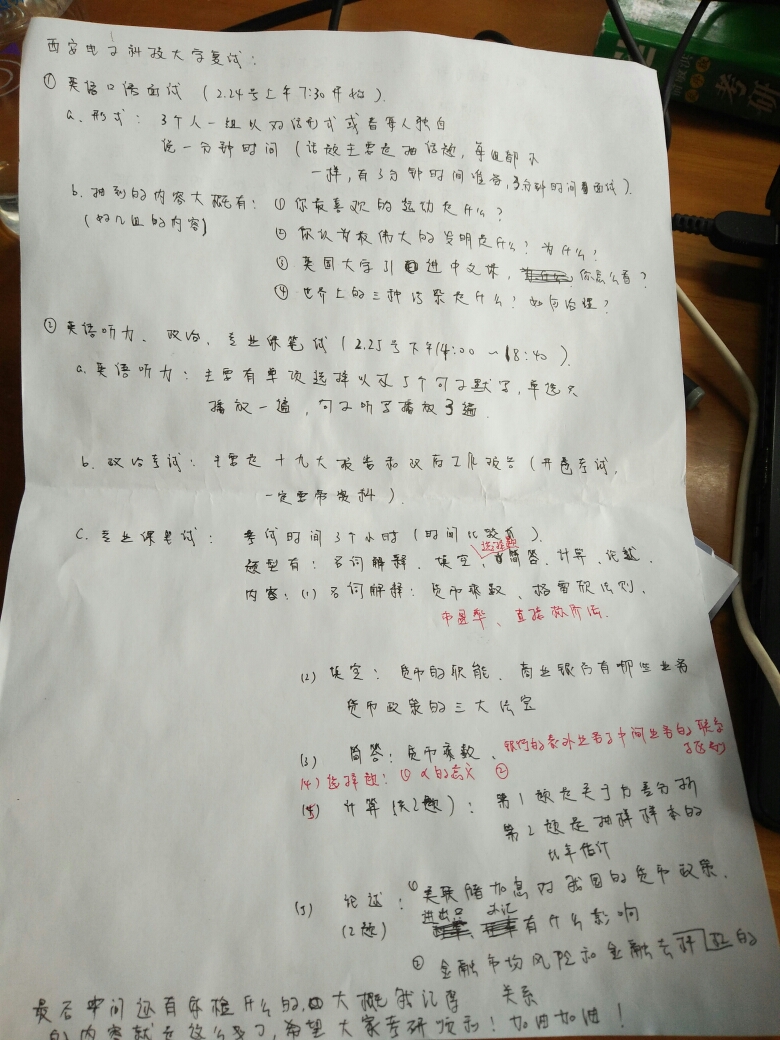 西安电子科技大学复试：
① 英语口语面试（2.24号上午7:30开始）.
a. 形式：3个人一组以对话形式或者每人独自
说一分钟时间（话题主要是抽话题，每组都不
一样，有3分钟时间准备，3分钟时间面试）.
b. 抽到的内容大概有：① 你最喜欢的运动是什么？
（好几组的内容） ② 你认为最伟大的发明是什么？为什么？
③ 英国大学引进中文课，你怎么看？
④ 世界上的三种污染是什么？如何治理？
② 英语听力、政治、专业课笔试（2.25号下午14:00～18:40）.
a. 英语听力：主要有单项选择以及5个句子默写，单选只
播放一遍，句子听写播放3遍.
b. 政治考试：主要是十九大报告和政府工作报告（开卷考试，
一定要带资料）.
C. 专业课笔试：考试时间3个小时（时间比较充）.
选择题
题型有：名词解释、填空、简答、计算、论述.
内容：(1) 名词解释：货币乘数、格雷欣法则、
直接标价法.
(2) 填空：货币的职能、商业银行有哪些业务
货币政策的三大法宝
(3) 简答：货币乘数、银行的表外业务与中间业务的联系
与区别
(4) 选择题：① α的意义 ②
(5) 计算（2题）：第1题是关于方差分析
第2题是抽样样本的
比率估计
(5) 论述：① 美联储加息对我国的货币政策、
(2题) 进出口 外汇 有什么影响
② 金融市场风险和金融去杠杆的
关系
最后中间还有体检什么的，大概我记得
的内容就是这么多了，希望大家考研顺利！加油加油！
考研